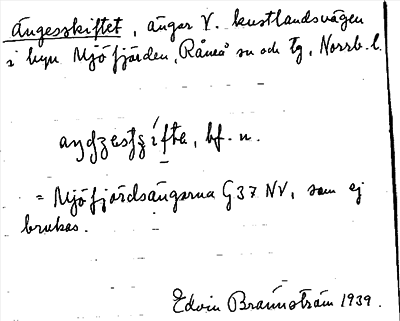 Ängesskiftet, ängar V. kustlandsvägen
i byn Mjöfjärden, Råneå sn och tg, Norrb. l.
bf. n.
= Mjöfjärdsängarna G37 NV, som ej
brukas.
Edvin Brännström 1939.